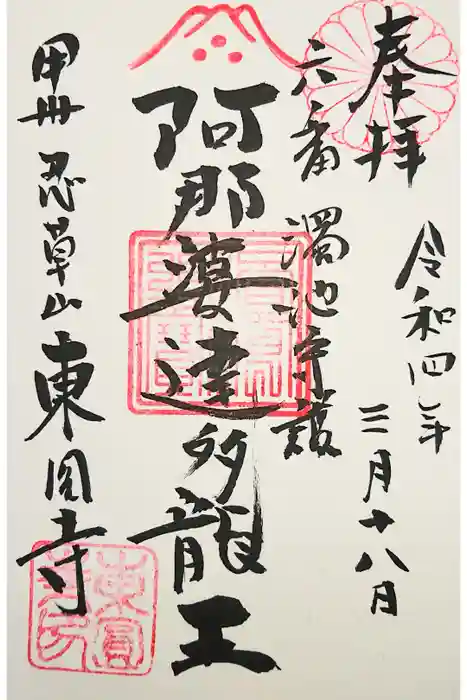 奉拝
令和四年
三月十八月
六番
濁池守護
阿那婆達多龍王
甲州 忍草山 東圓寺